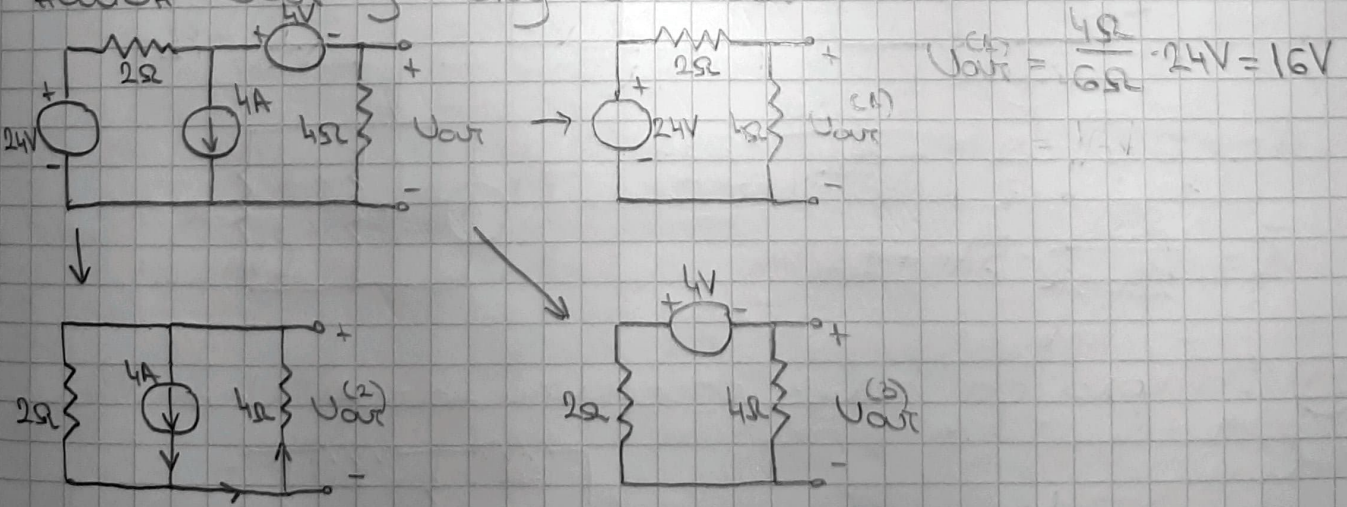 4V
+ -
2Ω
+ 24V -
4A
4Ω
+ Uout -
→
2Ω
+ 24V -
4Ω
+ Uout^(1) -
Uout^(1) = 4Ω/6Ω · 24V = 16V
2Ω
4A
4Ω
+ Uout^(2) -
4V
+ -
2Ω
4Ω
+ Uout^(3) -